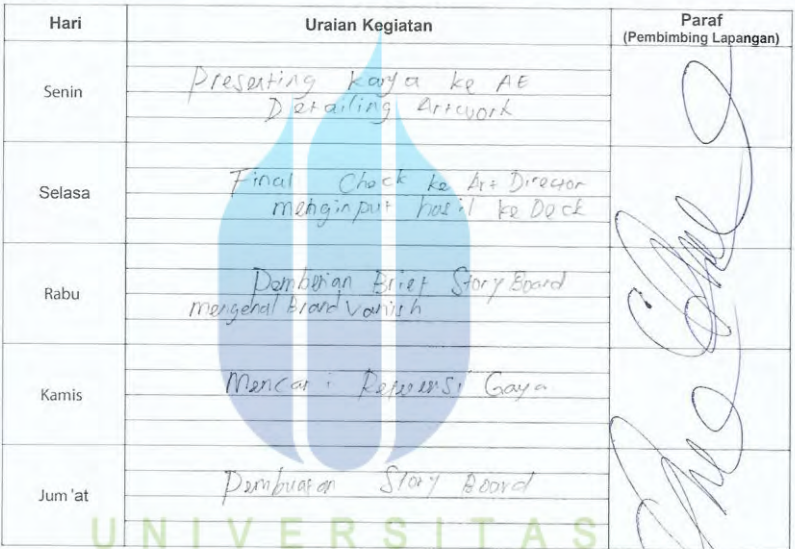 Hari Uraian Kegiatan Paraf
(Pembimbing Lapangan)
Senin
Presenting karya ke AE
Detailing Artwork
Selasa
Final Check ke Art Director
menginput hasil ke Deck
Rabu
Pemberian Brief Story Board
mengenai Brand Vanish
Kamis
Mencari Referensi Gaya
Jum'at
Pembuatan Story Board
UNIVERSITAS